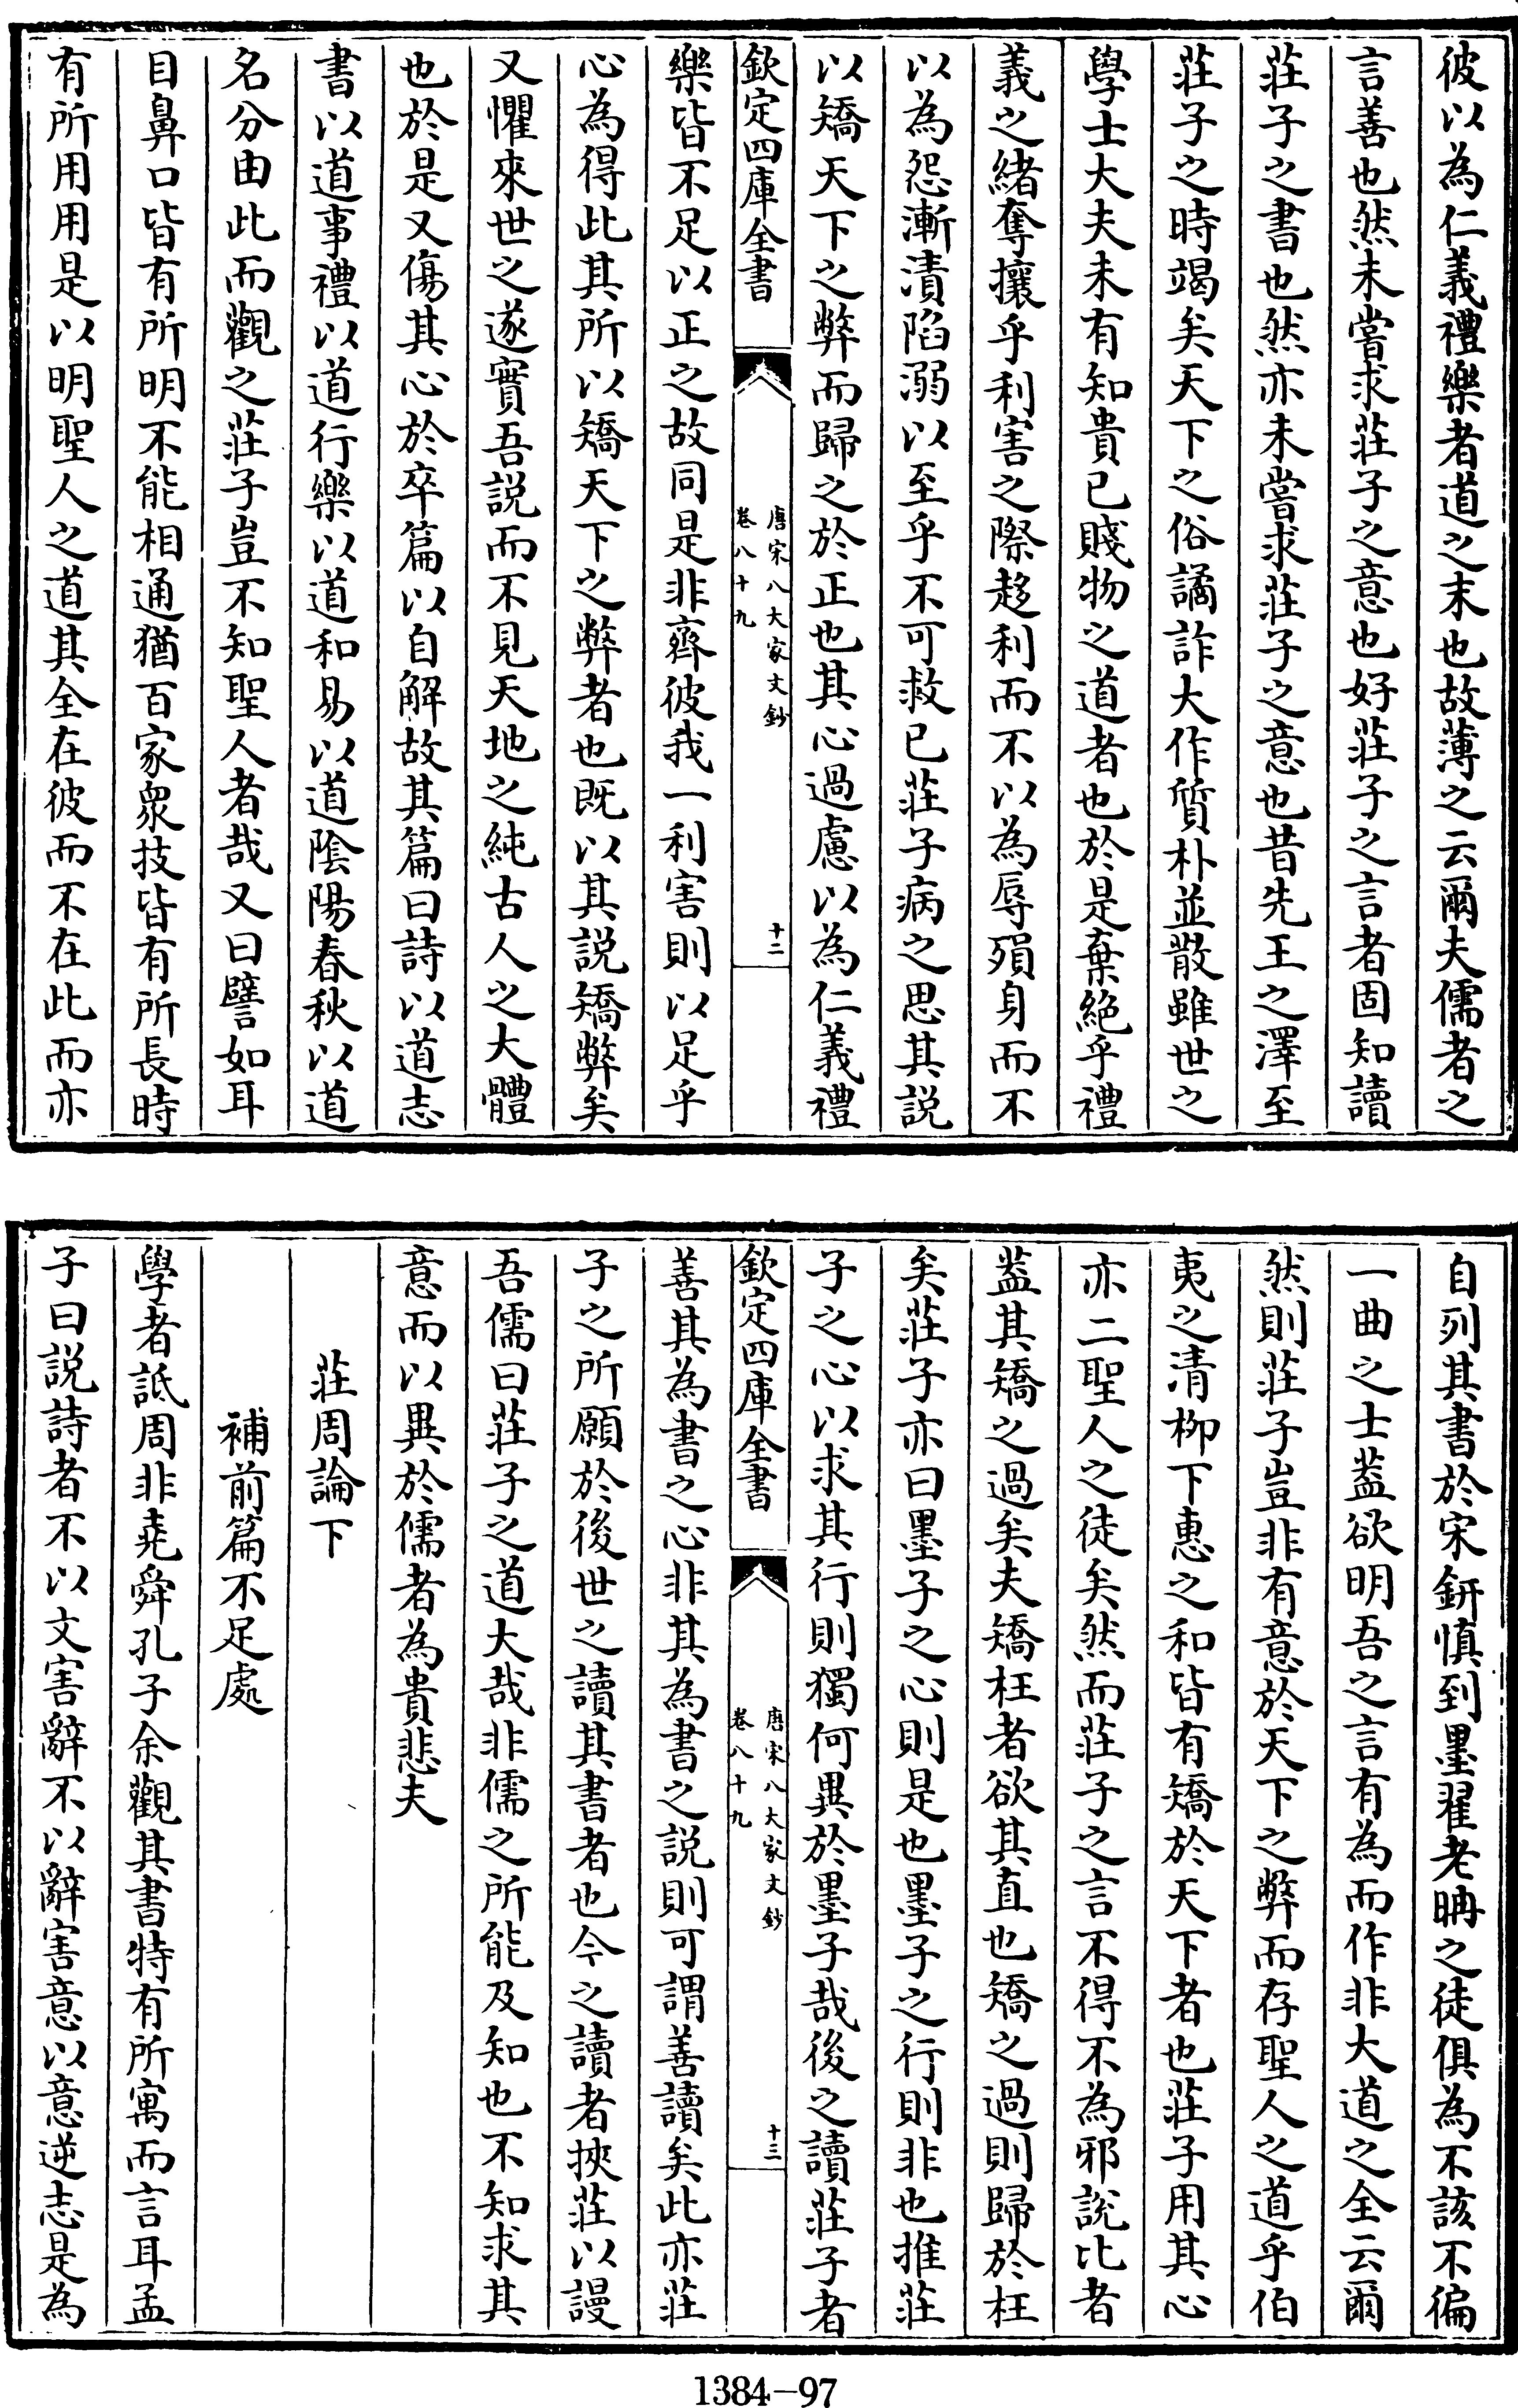 彼以為仁義禮樂者道之末也故薄之云爾夫儒者之
言善也然未嘗求莊子之意也好莊子之言者固知讀
莊子之書也然亦未嘗求莊子之意也昔先王之澤至
莊子之時竭矣天下之俗譎詐大作質朴並散雖世之
學士大夫未有知貴已賤物之道者也於是棄絕乎禮
義之緒奪攘乎利害之際趍利而不以為辱殞身而不
以為怨漸漬陷溺以至乎不可救已莊子病之思其説
以矯天下之弊而歸之於正也其心過慮以為仁義禮
欽定四庫全書
唐宋八大家文鈔
卷八十九
十二
樂皆不足以正之故同是非齊彼我一利害則以足乎
心為得此其所以矯天下之弊者也既以其説矯弊矣
又懼來世之遂實吾説而不見天地之純古人之大體
也於是又傷其心於卒篇以自解故其篇曰詩以道志
書以道事禮以道行樂以道和易以道陰陽春秋以道
名分由此而觀之莊子豈不知聖人者哉又曰譬如耳
目鼻口皆有所明不能相通猶百家衆技皆有所長時
有所用用是以明聖人之道其全在彼而不在此而亦
自列其書於宋鈃慎到墨翟老聃之徒俱為不該不徧
一曲之士葢欲明吾之言有為而作非大道之全云爾
然則莊子豈非有意於天下之弊而存聖人之道乎伯
夷之清柳下惠之和皆有矯於天下者也莊子用其心
亦二聖人之徒矣然而莊子之言不得不為邪説比者
葢其矯之過矣夫矯枉者欲其直也矯之過則歸於枉
矣莊子亦曰墨子之心則是也墨子之行則非也推莊
子之心以求其行則獨何異於墨子哉後之讀莊子者
欽定四庫全書
唐宋八大家文鈔
卷八十九
十三
善其為書之心非其為書之説則可謂善讀矣此亦莊
子之所願於後世之讀其書者也今之讀者挾莊以謾
吾儒曰莊子之道大哉非儒之所能及知也不知求其
意而以異於儒者為貴悲夫
莊周論下
補前篇不足處
學者詆周非堯舜孔子余觀其書特有所寓而言耳孟
子曰説詩者不以文害辭不以辭害意以意逆志是為
1384-97